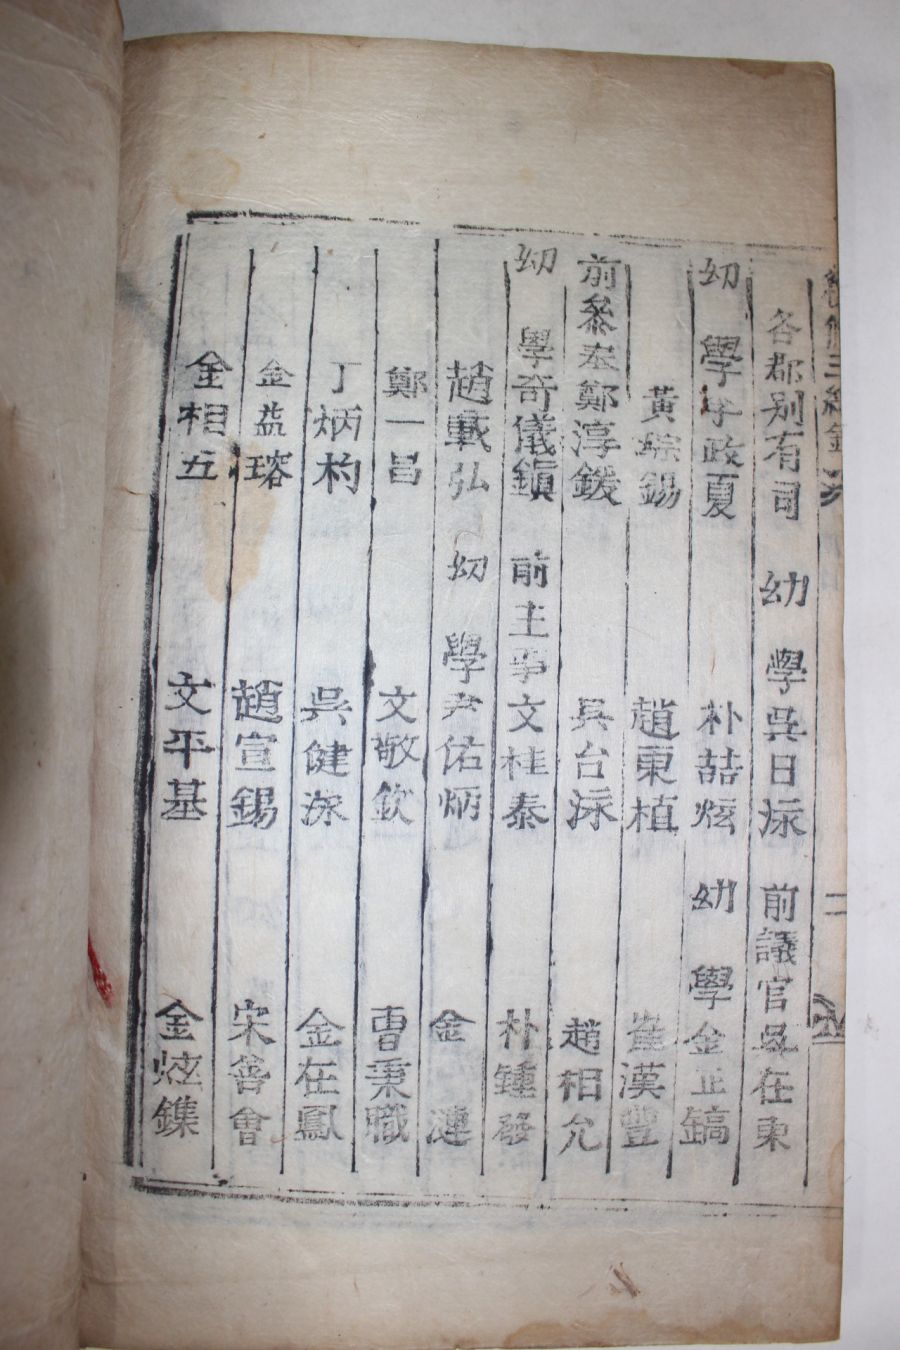 各郡別有司 幼學吳日泳 前議官吳在東
幼學李政夏 朴喆炫 幼學金正鎬
黃琮錫 趙東植 崔漢豐
前參奉鄭淳鍰 吳台泳 趙相允
幼學奇儀鎭 前主事文桂泰 朴鍾發
趙載弘 幼學尹佑炳 金漣
鄭一昌 文敬欽 曺秉職
丁炳杓 吳健泳 金在鳳
金益瑢 趙宣錫 宋普會
金相五 文平基 金炫鏶